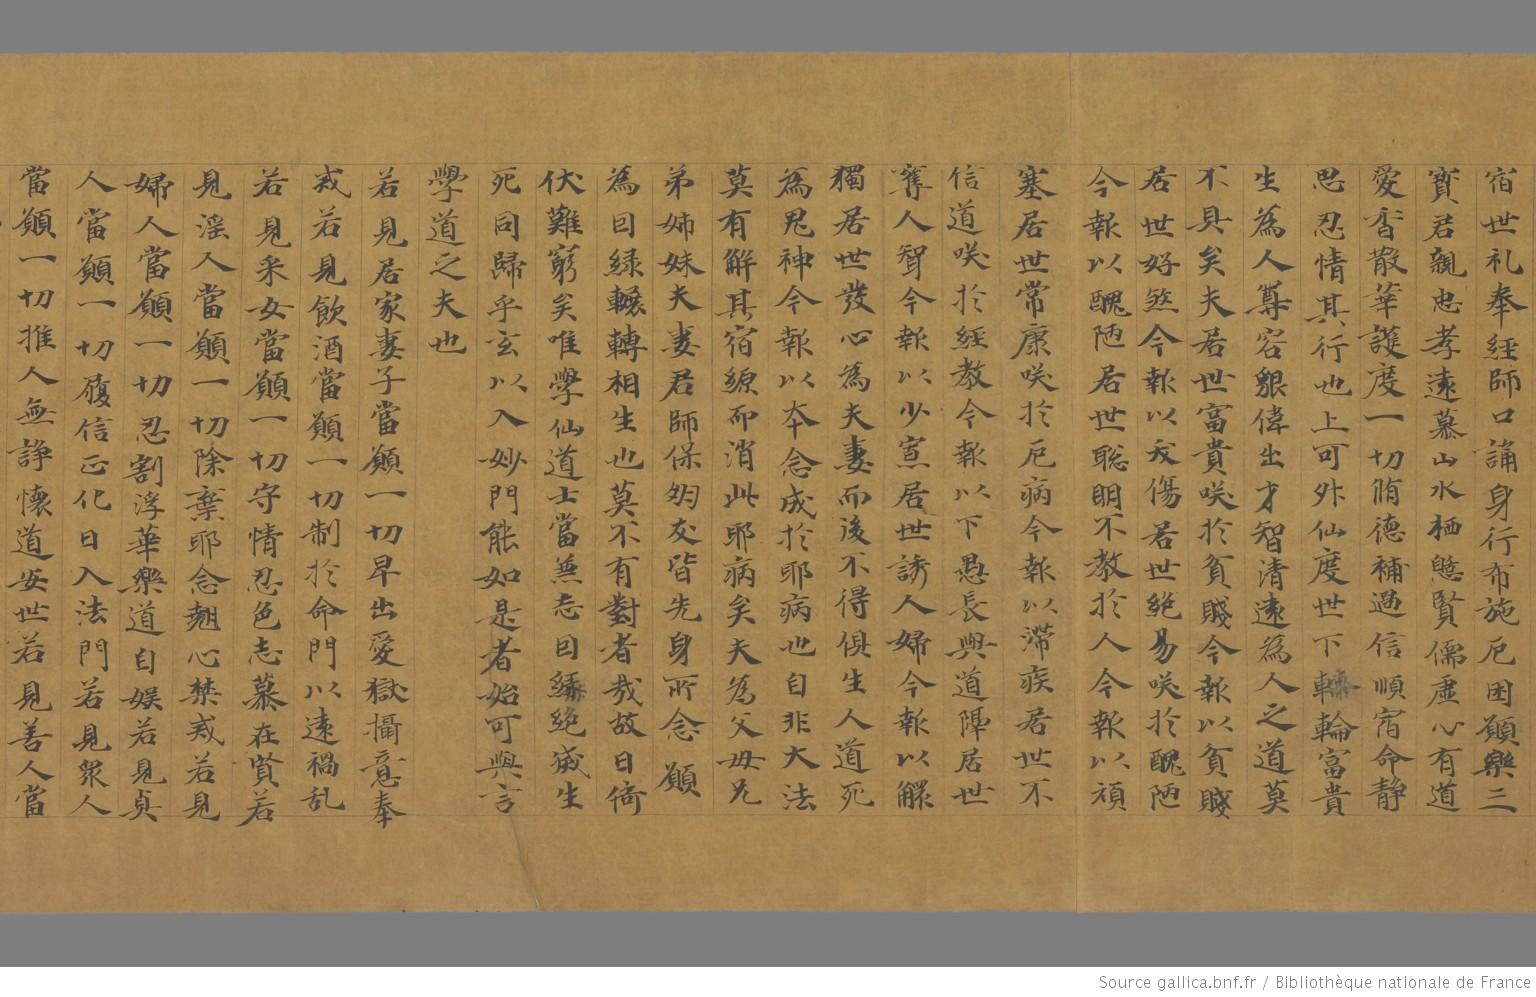 宿世礼奉經師口誦身行布施厄困願樂三
寶君親忠孝遠慕山水栖憩賢儒虛心有道
愛香散華護度一切脩德補過信順宿命静
思忍情其行也上可外仙度世下轉輪富貴
生為人尊容皃偉出才智清遠為人之道莫
不具矣夫居世富貴咲於貧賤今報以貧賤
居世好煞今報以夭傷居世絶易咲於醜陋
今報以醜陋居世聡明不教於人今報以頑
塞居世常康咲於厄病今報以滯疾居世不
信道咲於經教今報以下愚長與道隔居世
奪人智今報以少寡居世誘人婦今報以鰥
獨居世發心為夫妻而後不得俱生人道死
為鬼神今報以夲念成於耶病也自非大法
莫有解其宿緣而消此耶病矣夫為父母兄
弟姊妹夫妻君師保朋友皆先身所念願
為因緣輾轉相生也莫不有對者哉故曰倚
伏難窮矣唯學仙道士當無恚因緣絶滅生
死同歸乎玄以入妙門能如是者始可與言
學道之夫也
若見居家妻子當願一切早出愛獄攝意奉
戒若見飲酒當願一切制於命門以遠禍乱
若見采女當願一切守情忍色志慕在賢若
見淫人當願一切除棄耶念翹心禁戒若見
婦人當願一切忍割浮華樂道自娱若見貞
人當願一切履信正化日入法門若見衆人
當願一切推人無諍懷道安世若見善人當
Source gallica.bnf.fr / Bibliothèque nationale de France